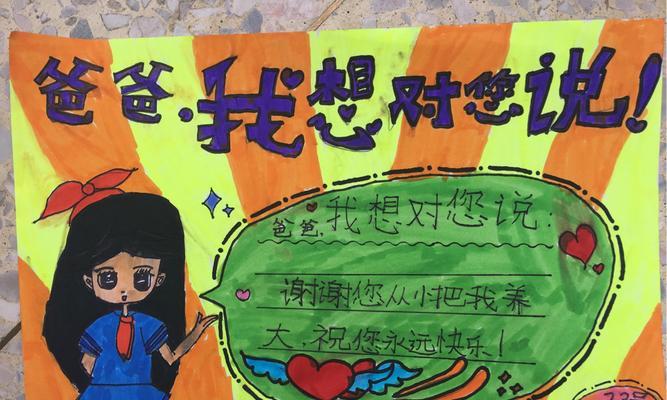 爸爸,我想对您说!
爸爸,我想对您说:
谢谢您从小把我养
大,祝您永远快乐!